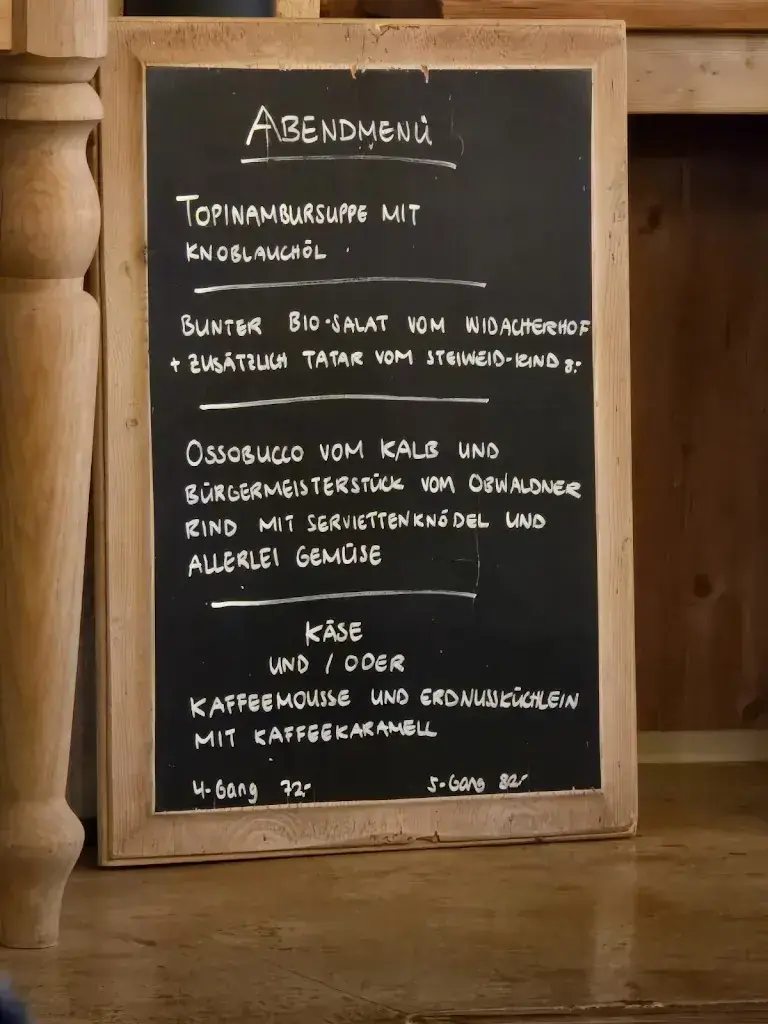 ABENDMENÜ
TOPINAMBURSUPPE MIT
KNOBLAUCHÖL
BUNTER BIO-SALAT VOM WIDACHERHOF
+ ZUSÄTZLICH TATAR VOM STEIWEID-RIND 8.-
OSSOBUCCO VOM KALB UND
BÜRGERMEISTERSTÜCK VOM OBWALDNER
RIND MIT SERVIETTENKNÖDEL UND
ALLERLEI GEMÜSE
KÄSE
UND / ODER
KAFFEEMOUSSE UND ERDNUSSKÜCHLEIN
MIT KAFFEEKARAMELL
4-Gang 72.- 5-Gang 82.-